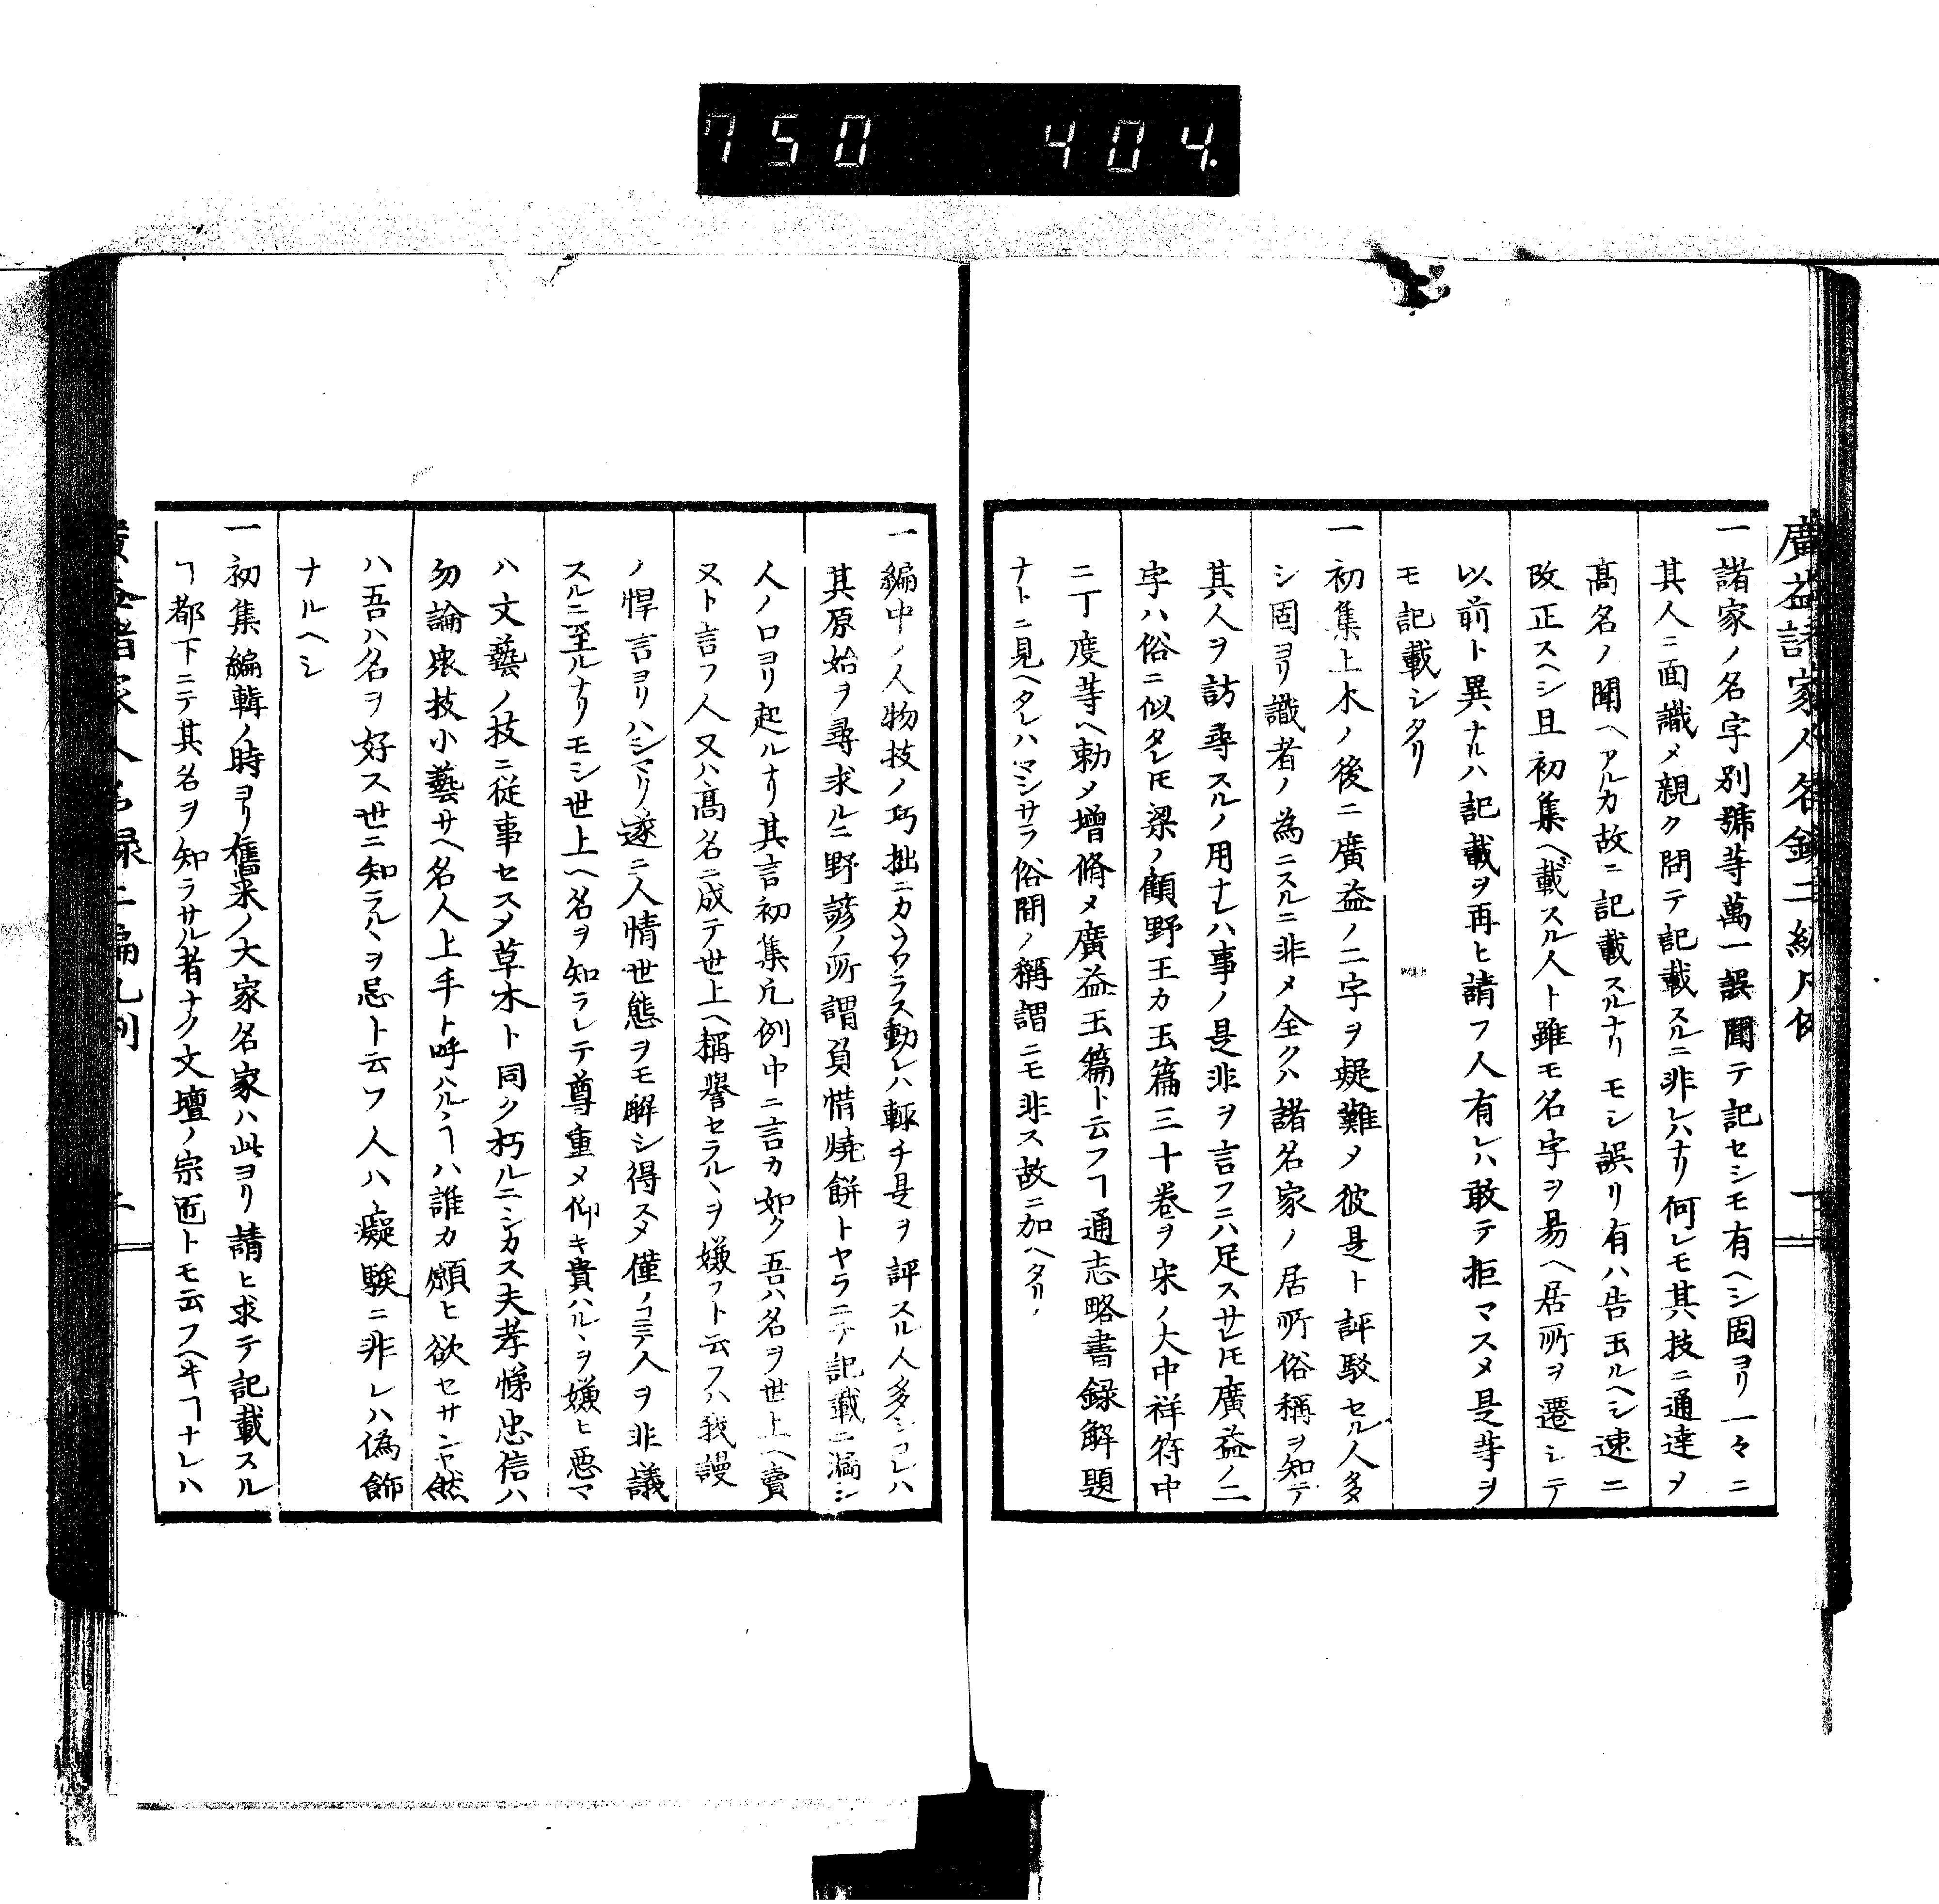 750 404.
廣益諸家人名録二編凡例
一諸家ノ名字別號等萬一誤聞テ記セシモ有ヘシ固ヨリ一々ニ
其人ニ面識メ親ク問テ記載スルニ非レハナリ何レモ其技ニ通達ヲ
高名ノ聞ヘアルカ故ニ記載スルナリモシ誤リ有ハ告玉ルヘシ速ニ
改正スヘシ且初集ヘ載スル人ト雖モ名字ヲ易ヘ居所ヲ遷シテ
以前ト異ナルハ記載ヲ再ヒ請フ人有レハ敢テ拒マスメ是等ヲ
モ記載シタリ
一初集上木ノ後ニ廣益ノ二字ヲ疑難メ彼是ト評駁セル人多
シ固ヨリ識者ノ為ニスルニ非メ全クハ諸名家ノ居所俗稱ヲ知テ
其人ヲ訪尋スルノ用ナレハ事ノ是非ヲ言フニハ足ス廿ヒ廣益ノ二
字ハ俗ニ似タレ𪜈梁ノ顧野王カ玉篇三十巻ヲ宋ノ大中祥符中
ニ丁度等ヘ勅メ増脩メ廣益玉篇ト云フヿ通志略書録解題
ナトニ見ヘタレハマシサラ俗間ノ稱謂ニモ非ス故ニ加ヘタリ
一編中ノ人物技ノ巧拙ニカヽワラス動レハ輙チ是ヲ評スル人多シコレハ
其原始ヲ尋求ルニ野諺ノ所謂負惜燒餅トヤラニテ記載ニ漏シ
人ノ口ヨリ起ルナリ其言初集凡例中ニ言カ如ク吾ハ名ヲ世上ヘ賣
ヌト言フ人又ハ高名ニ成テ世上ヘ稱誉セラルヽヲ嫌フト云フハ我謾
ノ悍言ヨリハシマリ遂ニ人情世態ヲモ解シ得スメ僅ノコニテ人ヲ非議
スルニ至ルナリモシ世上ヘ名ヲ知ラレテ尊重メ仰キ貴ハルヽヲ嫌ヒ悪マ
ハ文藝ノ技ニ従事セスメ草木ト同ク朽ルニシカス夫孝悌忠信ハ
勿論衆技小藝サヘ名人上手ト呼ハルヽヿハ誰カ願ヒ欲セサンヤ然
ハ吾ハ名ヲ好ス世ニ知ラルヽヲ忌ト云フ人ハ癡騃ニ非レハ偽飾
ナルヘシ
一初集編輯ノ時ヨリ舊来ノ大家名家ハ此ヨリ請ヒ求テ記載スル
ヿ都下ニテ其名ヲ知ラサル者ナク文壇ノ宗匠トモ云フヘキヿナレハ